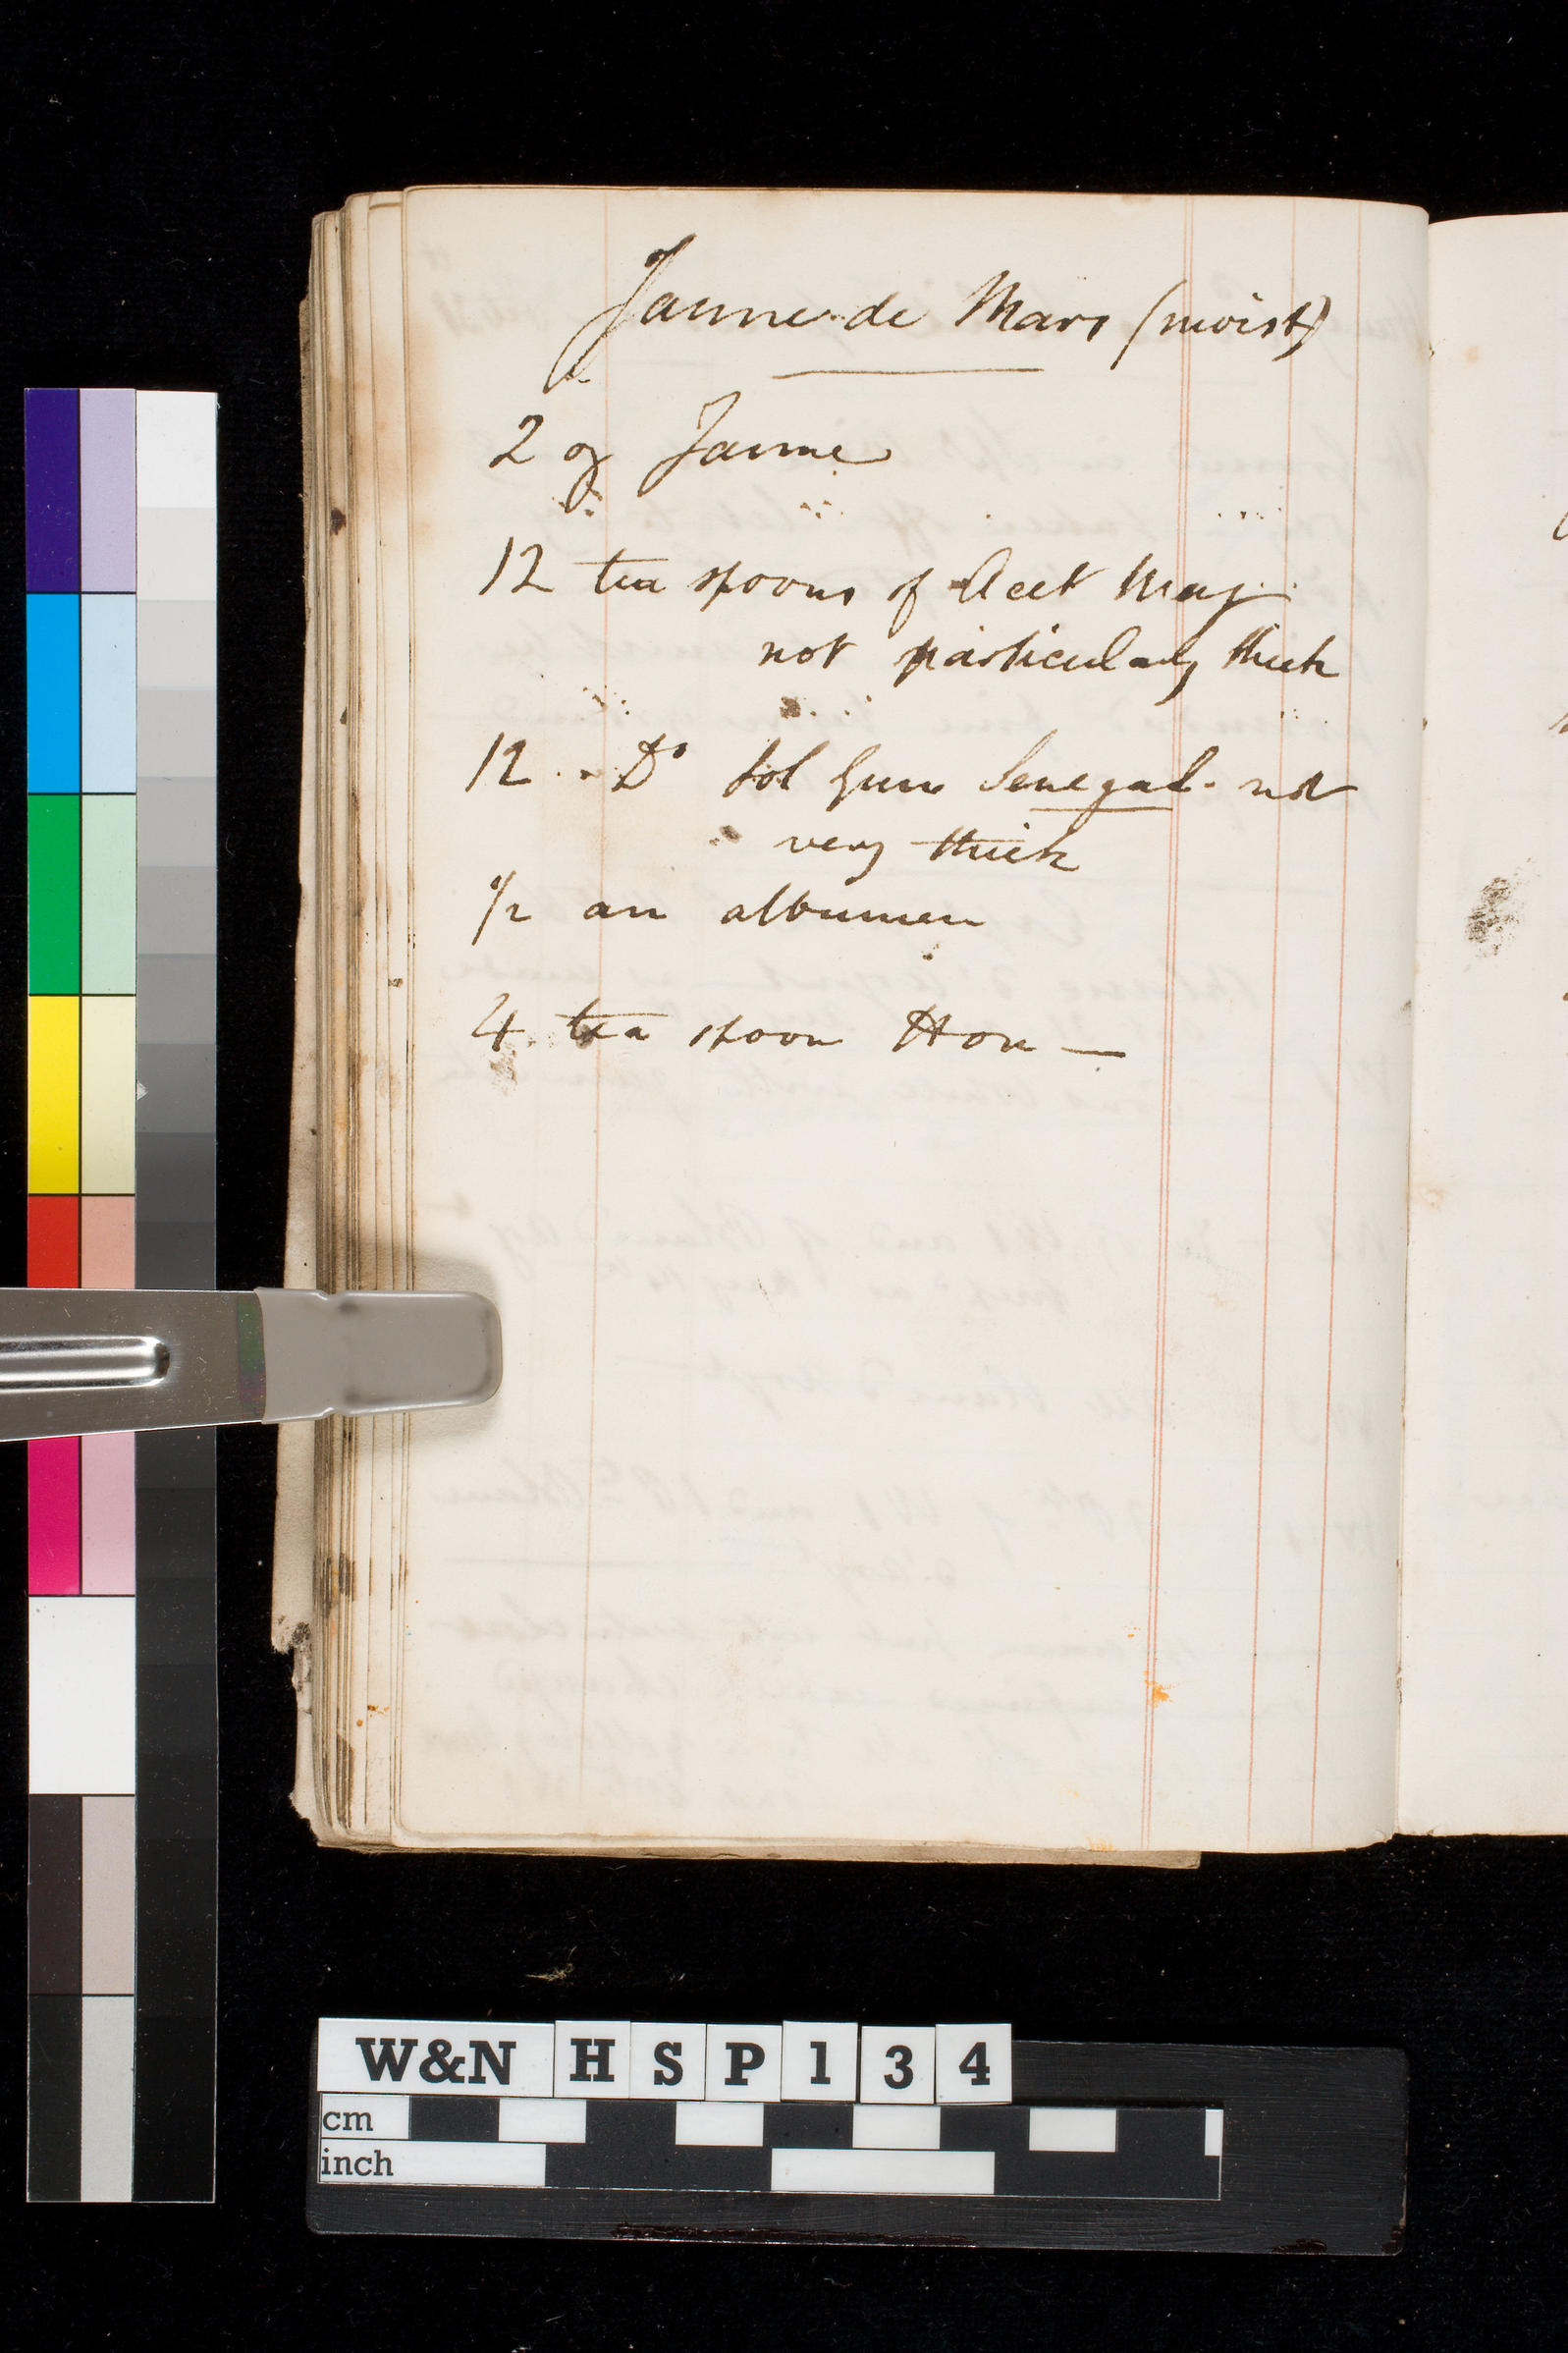 Jaune de Mars (moist)
2 oz Jaune
12 tea spoons of Acet Mag
not particularly thick
12 Do Sol Gum Senegal - not
very thick
1/2 an albumen
4 tea spoon Hon —
W&N HSP134
cm
inch